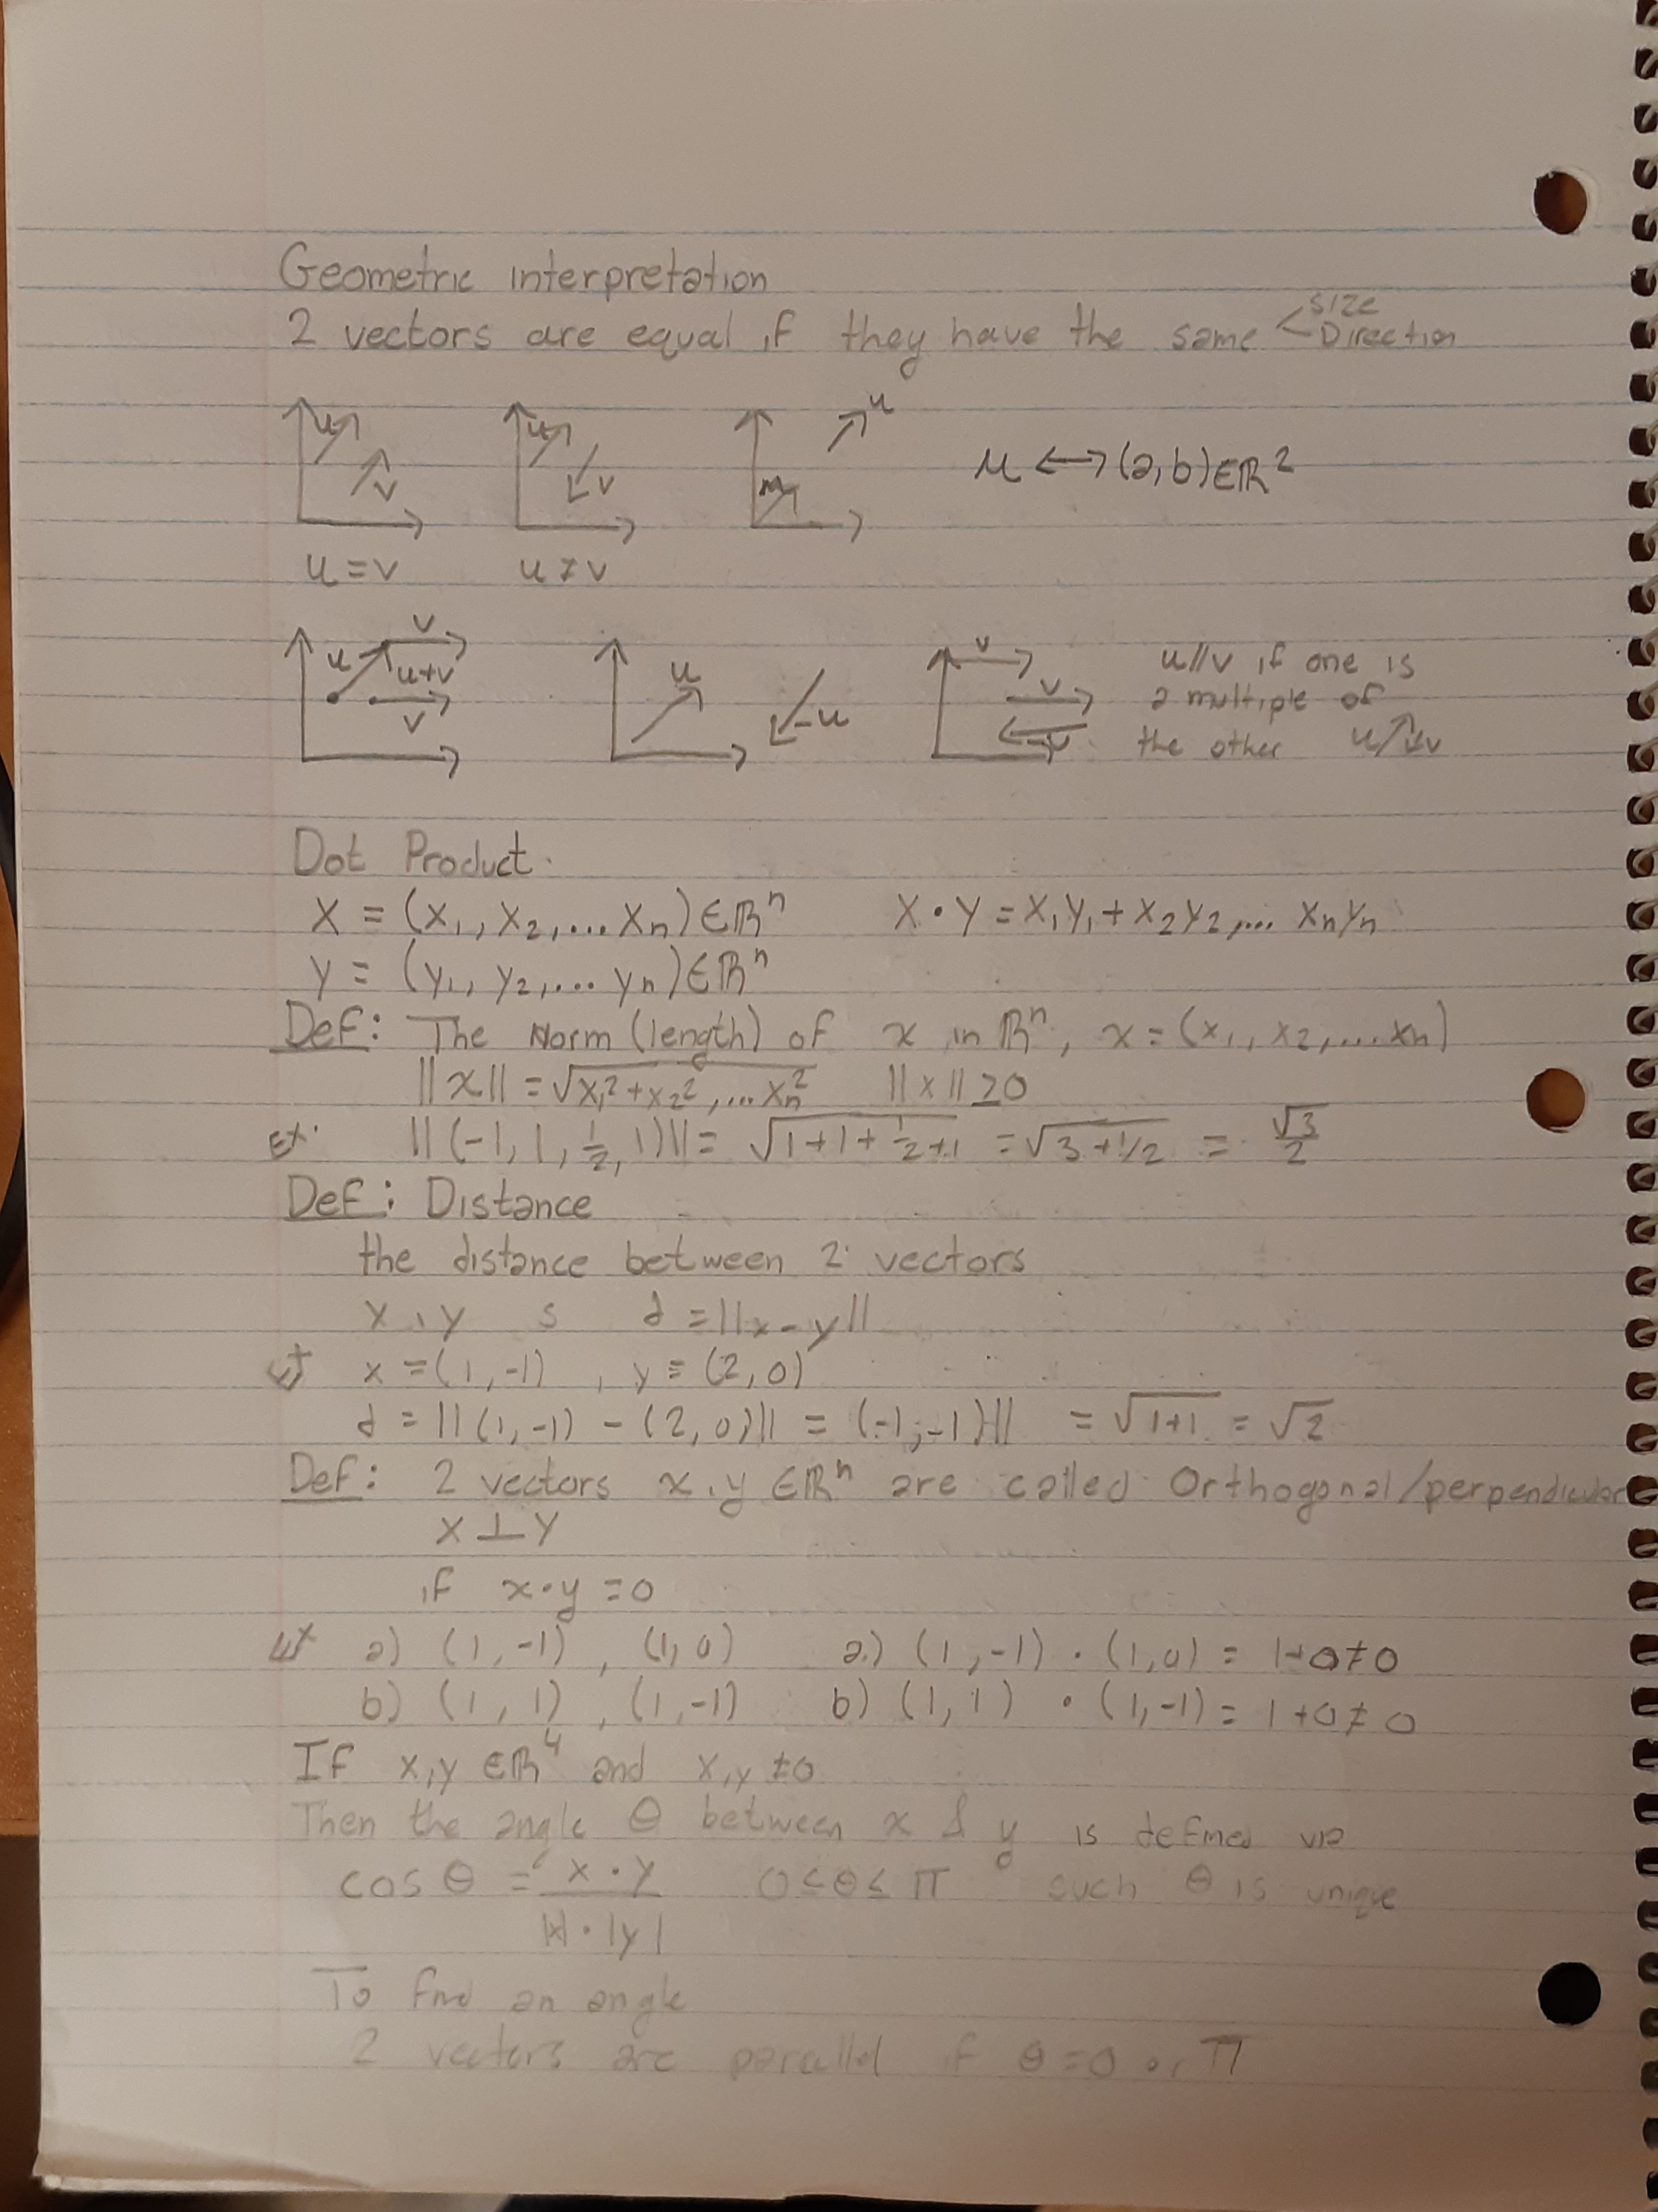 Geometric interpretation
2 vectors are equal if they have the same < size Direction
u v u v u m u ↔ (a,b)∈ℝ²
u = v u ≠ v
v u u+v v u -u v v -v u//v if one is
a multiple of
the other
Dot Product
X = (x₁, x₂,... xₙ)∈ℝⁿ X · Y = x₁y₁ + x₂y₂,... xₙyₙ
Y = (y₁, y₂,... yₙ)∈ℝⁿ
Def: The Norm (length) of x in ℝⁿ, x = (x₁, x₂,... xₙ)
||x|| = √x₁² + x₂²,... xₙ² ||x|| ≥ 0
Ex. ||(-1, 1, 1/2, 1)|| = √1+1+1/2+1 = √3+1/2 = √3/2
Def: Distance
the distance between 2 vectors
x, y s d = ||x-y||
Ex x = (1,-1) , y = (2,0)
d = ||(1,-1) - (2,0)|| = (-1,-1)|| = √1+1 = √2
Def: 2 vectors x, y ∈ℝⁿ are called Orthogonal/perpendicular
X ⊥ Y
if x·y = 0
Ex a) (1,-1) , (1,0) a.) (1,-1) · (1,0) = 1+0≠0
b) (1,1) , (1,-1) b) (1,1) · (1,-1) = 1+0≠0
If x,y ∈ℝ⁴ and x,y ≠0
Then the angle θ between x & y is defined via
cos θ = x · y / |x| · |y| 0≤θ≤π such θ is unique
To find an angle
2 vectors are parallel if θ=0 or π